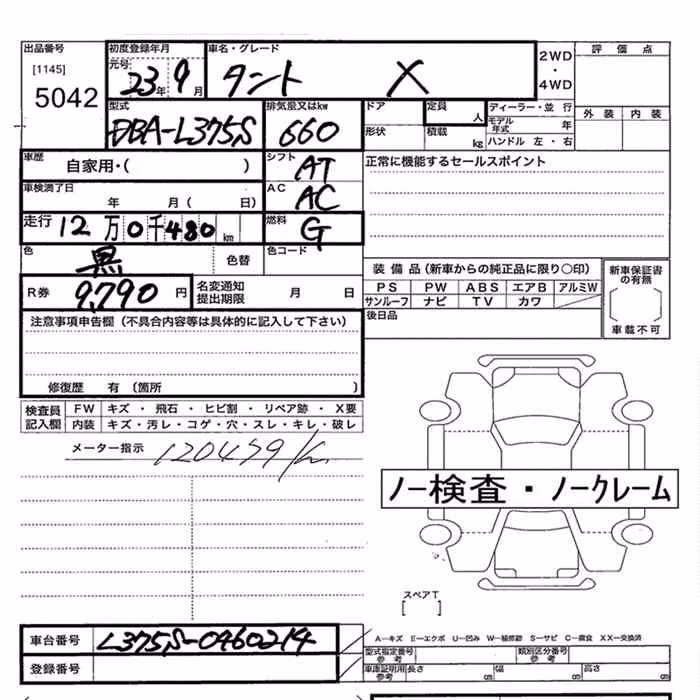 出品番号 初度登録年月 車名・グレード 2WD・4WD 評価点
[1145] 元号 23年 9月 タント X
5042
型式 排気量又はkw ドア 定員 人 ディーラー・並行 外装 内装
DBA-L375S 660 形状 積載 kg モデル年式 年
ハンドル 左・右
車歴 自家用・( ) シフト AT 正常に機能するセールスポイント
車検満了日 年 月( 日) AC AC
走行 12万0千480km 燃料 G
色 黒 色替 色コード
装備品(新車からの純正品に限り〇印) 新車保証書の有無
R券 9,790円 名変通知提出期限 月 日 PS PW ABS エアB アルミW
サンルーフ ナビ TV カワ 車載不可
注意事項申告欄(不具合内容等は具体的に記入して下さい) 後日品
修復歴 有(箇所 )
検査員記入欄 FW キズ・飛石・ヒビ割・リペア跡・X要
内装 キズ・汚レ・コゲ・穴・スレ・キレ・破レ
メーター指示 120479km
ノー検査・ノークレーム
スペアT
[ ]
車台番号 L375S-0460214 A―キズ E―エクボ U―凹み W―補修跡 S―サビ C―腐食 XX―交換済
型式指定番号 参考 類別区分番号 参考
登録番号 車庫証明用 参考 長さ cm 幅 cm 高さ cm